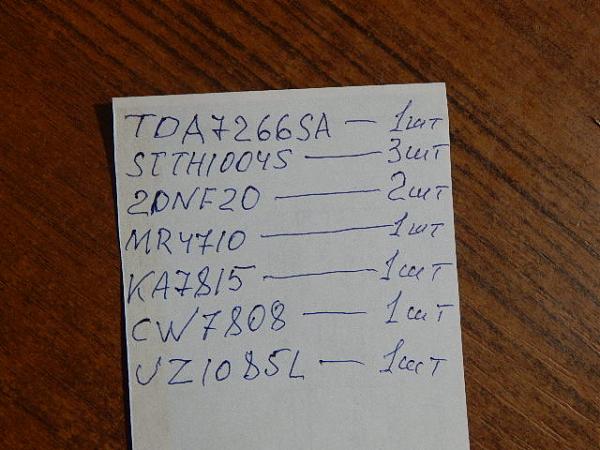 TDA7266SA — 1шт
STTH1004S — 3шт
2DNF20 — 2шт
MR4710 — 1шт
KA7815 — 1шт
CW7808 — 1шт
UZ1085L — 1шт